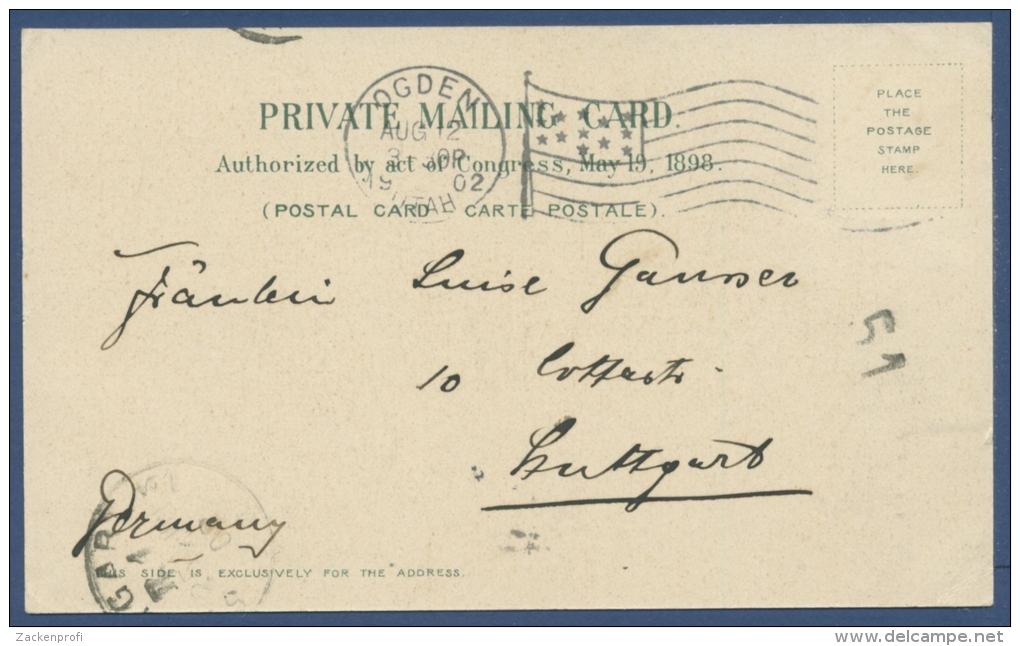 OGDEN
AUG 12
3 30P
19 02
UTAH
PRIVATE MAILING CARD.
Authorized by act of Congress, May 19, 1898.
(POSTAL CARD CARTE POSTALE).
PLACE
THE
POSTAGE
STAMP
HERE.
Fräulein Luise Gansser
10 Cottastr.
Stuttgart
Germany
THIS SIDE IS EXCLUSIVELY FOR THE ADDRESS.
GAR
Zackenprofi
www.delcampe.net